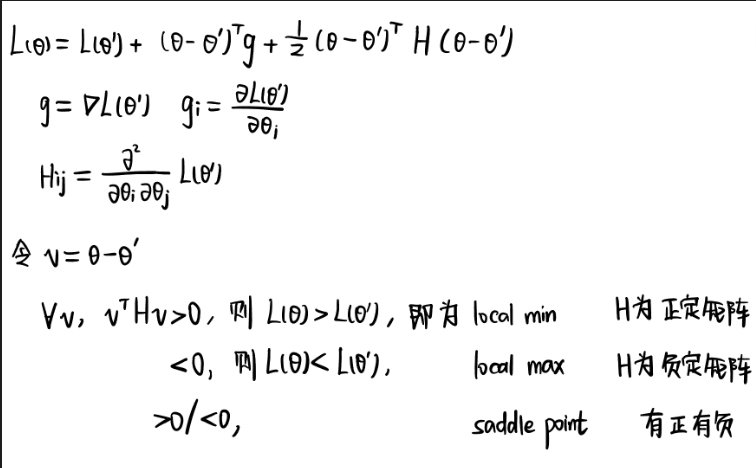 L(θ) = L(θ') + (θ - θ')ᵀg + 1/2 (θ - θ')ᵀ H (θ - θ')
g = ∇L(θ') gᵢ = ∂L(θ')/∂θᵢ
Hᵢⱼ = ∂²/∂θᵢ∂θⱼ L(θ')
令 v = θ - θ'
∀v, vᵀHv>0, 则 L(θ) > L(θ'), 即为 local min H为 正定矩阵
<0, 则 L(θ) < L(θ'), local max H为 负定矩阵
>0/<0, saddle point 有正有负